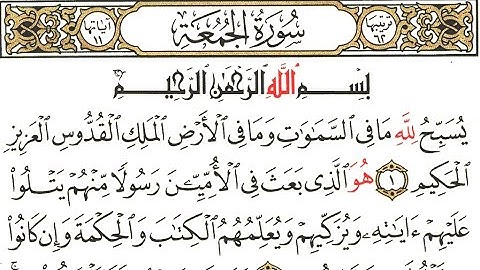 ترتيبها ٦٢ سُورَةُ الجُمُعَةِ آياتها ١١
بِسْمِ اللَّهِ الرَّحْمَٰنِ الرَّحِيمِ
يُسَبِّحُ لِلَّهِ مَا فِي ٱلسَّمَٰوَٰتِ وَمَا فِي ٱلْأَرْضِ ٱلْمَلِكِ ٱلْقُدُّوسِ ٱلْعَزِيزِ
ٱلْحَكِيمِ ١ هُوَ ٱلَّذِي بَعَثَ فِي ٱلْأُمِّيِّـۧنَ رَسُولًا مِّنْهُمْ يَتْلُوا۟
عَلَيْهِمْ ءَايَٰتِهِۦ وَيُزَكِّيهِمْ وَيُعَلِّمُهُمُ ٱلْكِتَٰبَ وَٱلْحِكْمَةَ وَإِن كَانُوا۟